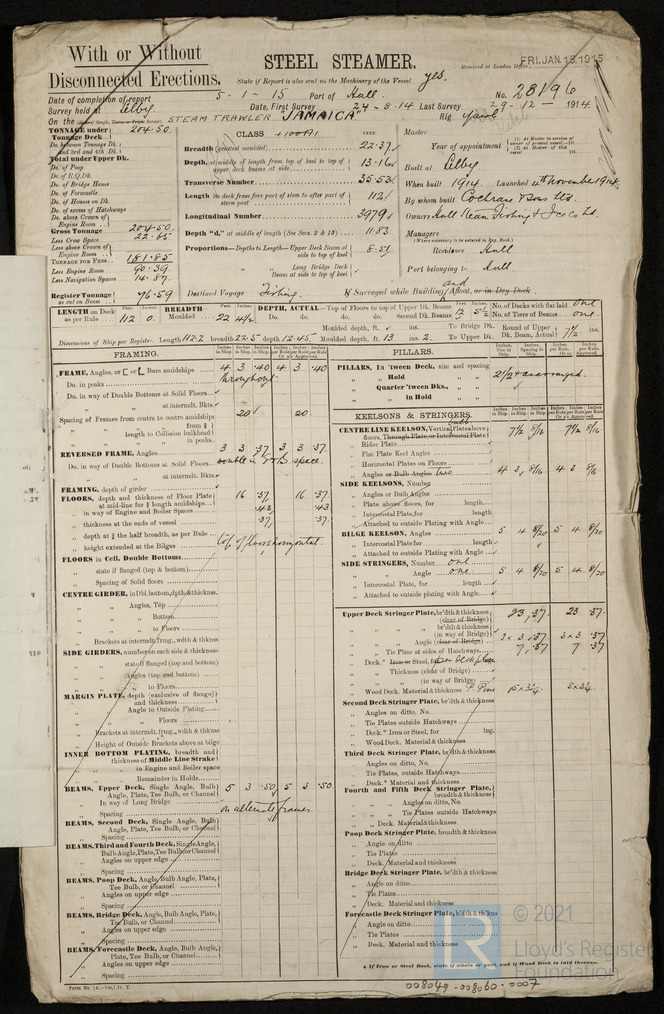 With or Without
Disconnected Erections.
STEEL STEAMER.
Received at London Office
FRI. JAN. 15. 1915
State if Report is also sent on the Machinery of the Vessel yes.
Date of completion of report 5-1-15 Port of Hull No. 28196
Survey held at Selby Date, First Survey 24-8-14 Last Survey 29-12-1914
On the STEAM TRAWLER "JAMAICA" Rig
TONNAGE under Tonnage Deck 204.50
Do. between Tonnage Dk. and 3rd and 4th Dk.
Total under Upper Dk.
Do. of Poop
Do. of R.Q.Dk.
Do. of Bridge House
Do. of Forecastle
Do. of Houses on Dk.
Do. of excess of Hatchways
Do. above Crown of Engine Room
Gross Tonnage 204.50
Less Crew Space 22.65
Less above Crown of Engine Room
TONNAGE FOR FEES 181.85
Less Engine Room 90.39
Less Navigation Spaces 14.87
Register Tonnage as cut on Beam 76.59
CLASS +100A1
FEET.
Breadth (greatest moulded) 22.37
Depth, at middle of length from top of keel to top of upper deck beams at side 13.16
Transverse Number 35.53
Length on deck from fore part of stem to after part of stern post 112
Longitudinal Number 3979
Depth "d," at middle of length (See Secs. 2 & 13) 11.83
Proportions—Depths to Length—Upper Deck Beam at side to top of keel 8.51
" " Long Bridge Deck Beam at side to top of keel
Destined Voyage Fishing If Surveyed while Building, Afloat, or in Dry Dock. and
Master
Year of appointment
Built at Selby
When built 1914 Launched 4th November 1914
By whom built Cochrane & Sons Ltd.
Owners Hull Steam Fishing & Ice Co Ld.
Managers
(Where necessary to be entered in Reg. Book)
Residence Hull
Port belonging to Hull
LENGTH on Deck as per Rule 112 0 BREADTH Moulded 22 4½ DEPTH, ACTUAL—Top of Floors to top of Upper Dk. Beams 12 5½ No. of Decks with flat laid One
Do. do. do. do. Second Dk. Beams No. of Tiers of Beams one.
Moulded depth, ft. ins. To Bridge Dk. Round of Upper Dk. Beam, Actual 7½ ins.
Dimensions of Ship per Register, Length 112.2 breadth 22.5 depth 12.45 Moulded depth, ft. 13 ins. 2. To Upper Dk.
FRAMING.
FRAME, Angles, or [ or L Bars amidships 4 3 .40 4 3 .40
Do. in peaks throughout.
Do. in way of Double Bottoms at Solid Floors
" " at intermdt. Bkts.
Spacing of Frames from centre to centre amidships 20 20
" " length to Collision bulkhead
" " in peaks
REVERSED FRAME, Angles 3 3 .37 3 3 .37
Do. in way of Double Bottoms at Solid Floors double in E & B space
" " at intermdt. Bkts.
FRAMING, depth of girder
FLOORS, depth and thickness of Floor Plate at mid-line for ½ length amidships 16 .37 16 .37
" in way of Engine and Boiler Spaces .43 .43
" thickness at the ends of vessel .37 .37
" depth at ¾ the half breadth, as per Rule top of floors horizontal.
" height extended at the Bilges
FLOORS in Cell. Double Bottoms
" state if flanged (top & bottom)
" Spacing of Solid floors
CENTRE GIRDER, in Dbl. bottom, depth & thickness.
" Angles, Top
" " Bottom
" " to Floors
" Brackets at intermdt. frmg., wdth & thknss
SIDE GIRDERS, number on each side & thickness
" state if flanged (top and bottom)
" Angles (top and bottom)
" " to Floors
MARGIN PLATE, depth (exclusive of flange) and thickness
" Angle to Outside Plating
" " Floors
" Brackets at intermdt. frmg., wdth & thknss
" Height of Outside Brackets above at bilge
INNER BOTTOM PLATING, breadth and thickness of Middle Line Strake
" " in Engine and Boiler space
" " Remainder in Holds
BEAMS, Upper Deck, Single Angle, Bulb Angle, Plate, Tee Bulb, or Channel 5 3 .50 5 3 .50
" In way of Long Bridge
" Spacing on alternate frames.
BEAMS, Second Deck, Single Angle, Bulb Angle, Plate, Tee Bulb, or Channel
" Spacing
BEAMS, Third and Fourth Deck, Single Angle, Bulb Angle, Plate, Tee Bulb or Channel
" Angles on upper edge
" Spacing
BEAMS, Poop Deck, Angle, Bulb Angle, Plate, Tee Bulb, or Channel
" Angles on upper edge
" Spacing
BEAMS, Bridge Deck, Angle, Bulb Angle, Plate, Tee Bulb, or Channel
" Angles on upper edge
" Spacing
BEAMS, Forecastle Deck, Angle, Bulb Angle, Plate, Tee Bulb, or Channel
" Angles on upper edge
" Spacing
PILLARS.
PILLARS, In 'tween Deck, size and spacing
" Hold 2½ as arranged.
" Quarter 'tween Dks.
" in Hold
KEELSONS & STRINGERS.
CENTRE LINE KEELSON, Vertical Plate above floors, Through Plate, or Intercostal Plate bulb 7½ 8/16 7½ 8/16
" Rider Plate
" Flat Plate Keel Angles
" Horizontal Plates on Floors
" Angles or Bulb Angles two 4 3 8/16 4 3 8/16
SIDE KEELSONS, Number
" Angles or Bulb Angles
" Plate above floors, for length
" Intercostal Plate, for length
" Attached to outside Plating with Angle
BILGE KEELSON, Angles 5 4 8/20 5 4 8/20
" Intercostal Plate for length
" Attached to outside Plating with Angle
SIDE STRINGERS, Number one
" Angle one 5 4 8/20 5 4 8/20
" Intercostal Plate, for length
" Attached to outside plating with Angle
Upper Deck Stringer Plate, br'dth & thickness (clear of Bridge) 23 .37 23 .37
" " br'dth & thickness (in way of Bridge)
" Angle (clear of Bridge) 3 x 3 .37 3 x 3 .37
" Tie Plate at sides of Hatchways 7 .37 7 .37
" Deck.* Iron or Steel,
" Thickness (clear of Bridge)
" " (in way of Bridge)
" Wood Deck. Material & thickness P. Pine 5 x 2¾ 5 x 2¾
Second Deck Stringer Plate, br'dth & thickness
" Angles on ditto, No.
" Tie Plates outside Hatchways
" Deck.* Iron or Steel, for lng.
" Wood Deck. Material & thickness
Third Deck Stringer Plate, br'dth & thickness
" Angles on ditto, No.
" Tie Plates, outside Hatchways
" Deck.* Material & thickness
Fourth and Fifth Deck Stringer Plate, breadth & thickness
" Angles on ditto, No.
" Tie Plates outside Hatchways
" Deck. Material & thickness
Poop Deck Stringer Plate, breadth & thickness
" Angle on ditto
" Tie Plates
" Deck. Material and thickness
Bridge Deck Stringer Plate, br'dth & thickness
" Angle on ditto
" Tie Plates
" Deck. Material and thickness
Forecastle Deck Stringer Plate, b'dth & th'kns
" Angle on ditto
" Tie Plates
" Deck. Material and thickness
* If Iron or Steel Deck, state if whole or part, and if Wood Deck is laid thereon.
© 2021
Lloyd's Register
Foundation